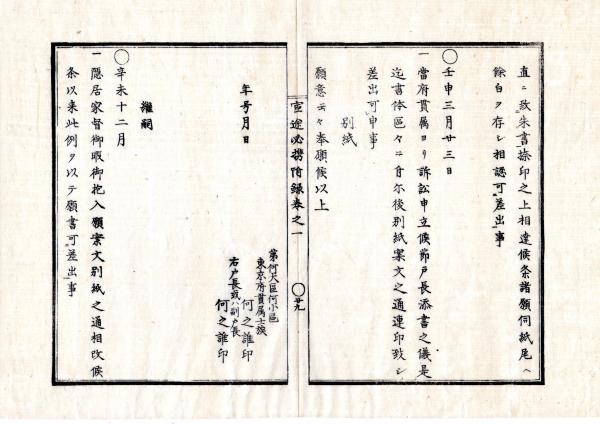 直ニ致朱書捺印之上相達候条諸願伺紙尾ヘ
餘白ヲ存シ相認可差出事
〇壬申三月廿三日
一當府貫属ヨリ訴訟申立候節戸長添書之儀是
迄書体區々ニ自尓後別紙案文之通連印致シ
差出可申事
別紙
願意云々奉願候以上
宣途必携附録巻之一
〇廿九
第何大區何小區
東京府貫属士族
何之誰印
右戸長或ハ副戸長
何之誰印
年号月日
継嗣
〇辛未十二月
一隠居家督御暇御抱入願案文別紙之通相改候
条以来此例ヲ以テ願書可差出事